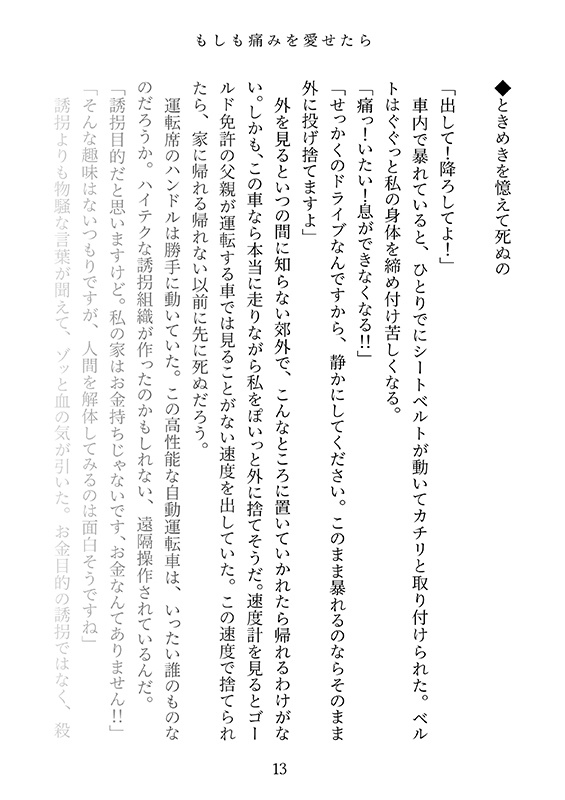 もしも痛みを愛せたら
◆ときめきを憶えて死ぬの
「出して！降ろしてよ！」
　車内で暴れていると、ひとりでにシートベルトが動いてカチリと取り付けられた。ベル
トはぐぐっと私の身体を締め付け苦しくなる。
「痛っ！いたい！息ができなくなる!!」
「せっかくのドライブなんですから、静かにしてください。このまま暴れるのならそのまま
外に投げ捨てますよ」
　外を見るといつの間に知らない郊外で、こんなところに置いていかれたら帰れるわけがな
い。しかも、この車なら本当に走りながら私をぽいっと外に捨てそうだ。速度計を見るとゴー
ルド免許の父親が運転する車では見ることがない速度を出していた。この速度で捨てられ
たら、家に帰れる帰れない以前に先に死ぬだろう。
　運転席のハンドルは勝手に動いていた。この高性能な自動運転車は、いったい誰のものな
のだろうか。ハイテクな誘拐組織が作ったのかもしれない、遠隔操作されているんだ。
「誘拐目的だと思いますけど。私の家はお金持ちじゃないです、お金なんてありません!!」
「そんな趣味はないつもりですが、人間を解体してみるのは面白そうですね」
　誘拐よりも物騒な言葉が聞えて、ゾッと血の気が引いた。お金目的の誘拐ではなく、殺
13